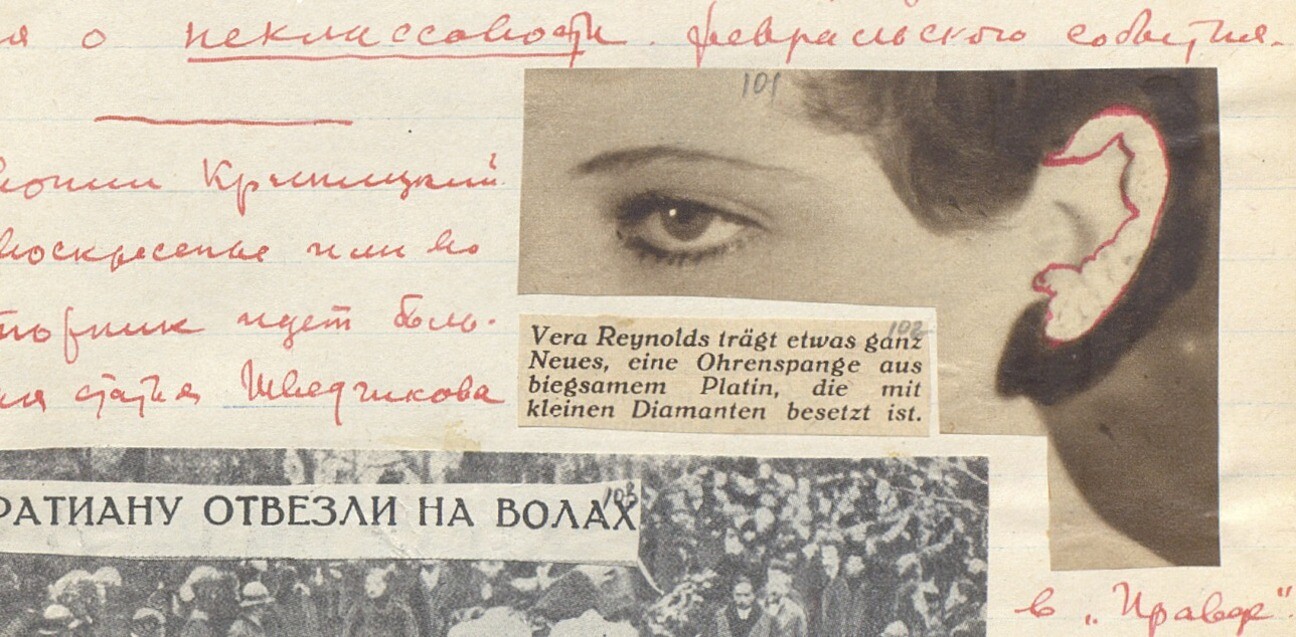 я о неклассовости февральского события.
101
Крыницкий
воскресенье или во
вторник идет боль-
ая статья Шведчикова
102
Vera Reynolds trägt etwas ganz
Neues, eine Ohrenspange aus
biegsamem Platin, die mit
kleinen Diamanten besetzt ist.
103
РАТИАНУ ОТВЕЗЛИ НА ВОЛАХ
в „Правде"